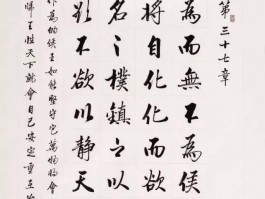 第三十七章
為而無不為侯
將自化化而欲
名之樸鎮之以
欲不欲以静天
作為的侯王如能堅守它萬物會
天下就會自己安定